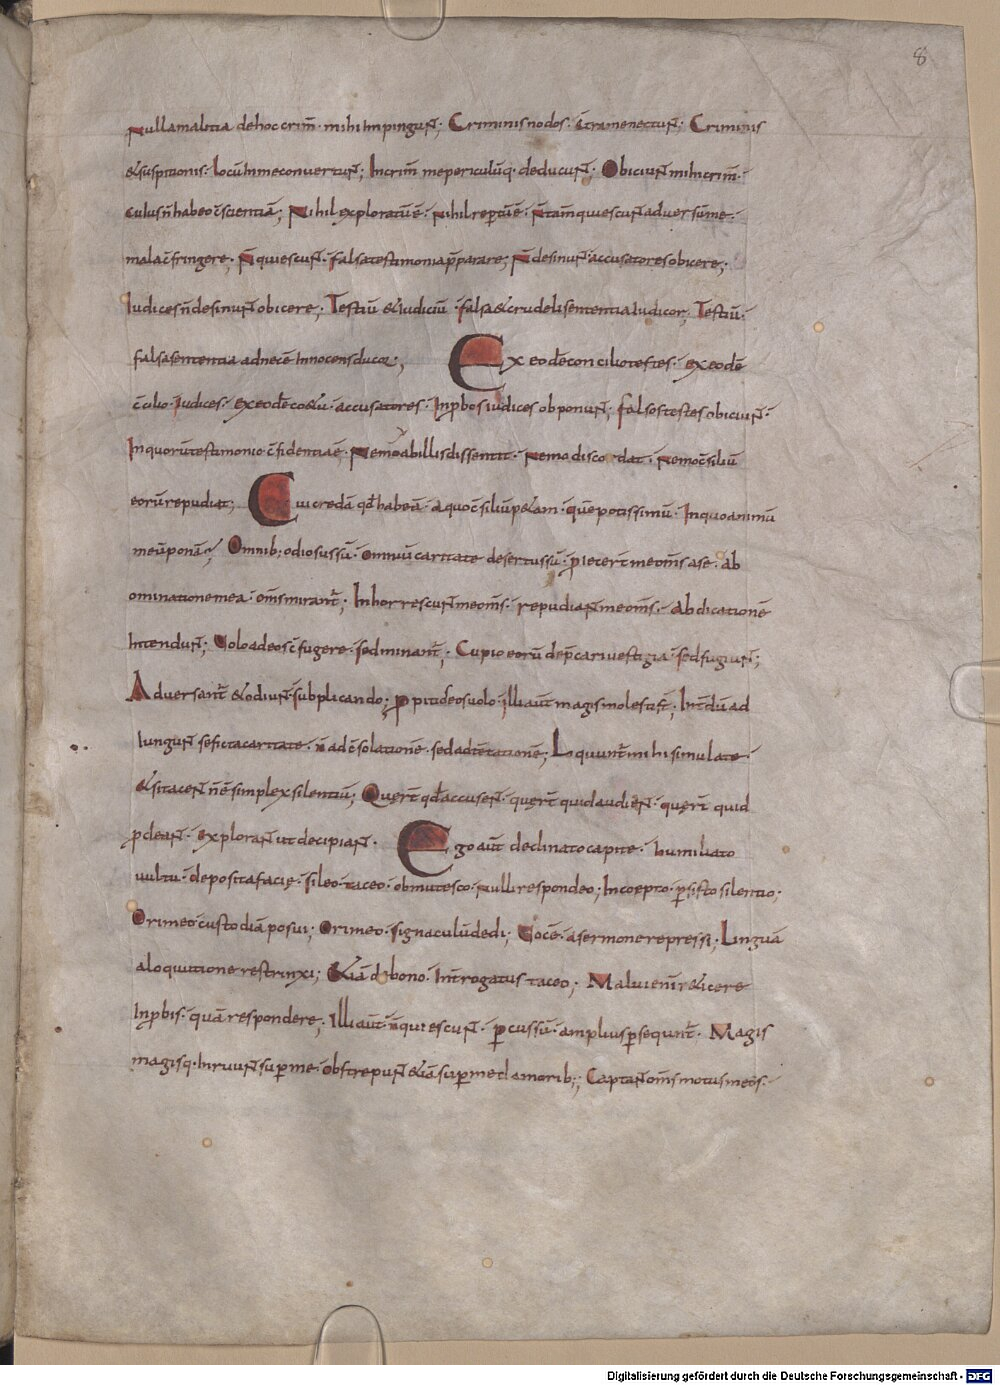 8
Nulla malitia de hoc crim̄· mihi Impingunt̄; Criminis nodos· c̄tra me nectunt̄; Criminis
&suspitionis· locū In me convertunt̄; Incrim̄ me periculūq· deducunt̄· Obiciunt̄ mihi crim̄·
cuius n̄ habeo c̄scientiā; Nihil exploratū ē· Nihil reptū ē· N̄ tam̄ quiescunt̄ adversū me·
mala c̄fringere; N̄ quiescunt̄· falsa testimonia p̄parare; N̄ desinunt̄ accusatores obicere;
Iudices n̄ desinunt̄ obicere; Testiū &iudiciū· falsa &crudeli sententia Iudicor; Testiū·
falsa sententia ad necē Innocens ducor;
Ex eodē concilio testes· ex eodē
c̄cilio· Iudices· ex eodē coetu· accusatores· Inpbos iudices obponunt̄; falsos testes obiciunt̄·
In quorū testimonio c̄fidentia ē· Nemo ab illis dissentit· Nemo discordat· Nemo c̄siliū
eorū repudiat; Cui credā qd̄ habeā· a quo c̄siliū p&am· quē potissimū· In quo animū
meū ponā; Omnib; odiosus sū· omniū caritate desertus sū· piecert̄ me om̄s a se· Ab
ominatione mea· om̄s mirant̄; Inhorrescunt̄ me om̄s· repudiant̄ me om̄s· Abdicationē
Intendunt̄; Volo ad eos c̄fugere· sed minant̄; Cupio eorū dep̄cari vestigia· sed fugiunt̄;
Adversant̄ &odiunt̄· subplicando; ppitios eos volo· Illi aut̄ magis molesti st̄; Int̄dū ad
Iungunt̄ se ficta caritate· n̄ ad c̄solationē· sed ad tētationē; Loquunt̄ mihi simulate·
&si tacent̄ n̄ ē simplex silentiū; Quęrt̄ qd̄ accusent̄· quęrt̄ quid audient̄· quęrt̄ quid
pdeant̄· explorant̄ ut decipiant̄·
Ego aut̄ declinato capite· humiliato
vultu· deposita facie· sileo· taceo· obmutesco· nulli respondeo; Incoepto· psisto silentio;
Ori meo custodiā posui; Ori meo· signaculū dedi; Vocē· a sermone repressi; Linguā
a loquutione restrinxi; &iā de bono· Int̄rogatus taceo; Malui enī r&icere
Inpbis· quā respondere; Illi aut̄ n̄ quiescunt̄· pcussū· amplius psequnt̄· Magis
magisq· Inruunt̄ sup me· obstrepunt̄ &iā sup me clamorib;; Captant̄ om̄s motus meos·
Digitalisierung gefördert durch die Deutsche Forschungsgemeinschaft - DFG